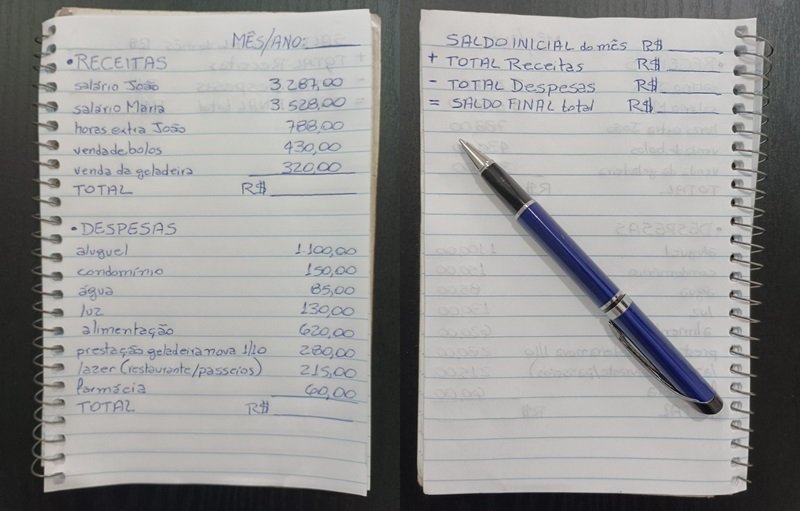 MÊS/ANO:
• RECEITAS
salário João 3.287,00
salário Maria 3.528,00
horas extra João 788,00
venda de bolos 430,00
venda da geladeira 320,00
TOTAL R$
• DESPESAS
aluguel 1.100,00
condomínio 150,00
água 85,00
luz 130,00
alimentação 620,00
prestação geladeira nova 1/10 280,00
lazer (restaurante/passeios) 215,00
farmácia 60,00
TOTAL R$
SALDO INICIAL do mês R$
+ TOTAL Receitas R$
- TOTAL Despesas R$
= SALDO FINAL total R$